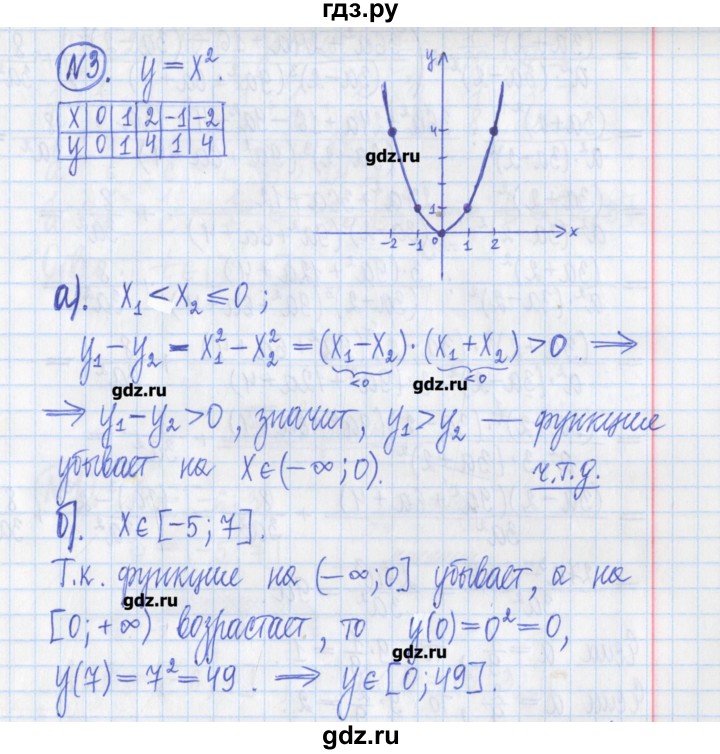 гдз.ру
№3. y = x².
x 0 1 2 -1 -2
y 0 1 4 1 4
y
4
1
-2 -1 0 1 2 x
gdz.ru
а). x₁ < x₂ ⩽ 0 ;
y₁ - y₂ = x₁² - x₂² = (x₁ - x₂) · (x₁ + x₂) > 0 ⟹
<0 <0
gdz.ru gdz.ru
⟹ y₁ - y₂ > 0, значит, y₁ > y₂ — функция
убывает на x∈(-∞; 0). ч.т.д.
б). x∈[-5; 7].
Т.к. функция на (-∞; 0] убывает, а на
gdz.ru
[0; +∞) возрастает, то y(0) = 0² = 0,
gdz.ru
y(7) = 7² = 49. ⟹ y∈[0; 49].
gdz.ru